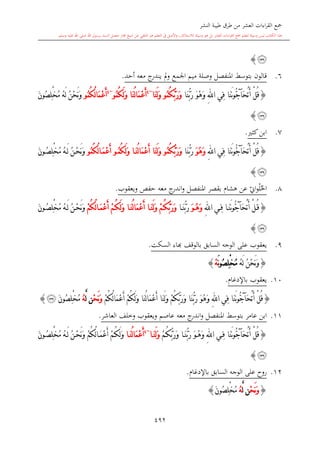 جمع القراءات العشر من طرق طيبة النشر
﴿١٣٩﴾
٦. قالون بتوسط المنفصل وصلة ميم الجمع ولم يندرج معه أحد.
﴿ قُلْ أَتُحَآجُّونَنَا فِي اللَّهِ وَهُوَ رَبُّنَا وَرَبُّكُمُو وَلَنَا أَعْمَالُنَا وَلَكُمُو أَعْمَالُكُمُو وَنَحْنُ لَهُ مُخْلِصُونَ
﴿١٣٩﴾
٧. ابن كثير.
﴿ قُلْ أَتُحَآجُّونَنَا فِي اللَّهِ وَهُوَ رَبُّنَا وَرَبُّكُمُو وَلَنَا أَعْمَالُنَا وَلَكُمُو أَعْمَالُكُمُو وَنَحْنُ لَهُ مُخْلِصُونَ
﴿١٣٩﴾
٨. الحُلْوانيّ عن هشام بقصر المنفصل واندرج معه حفص ويعقوب.
﴿ قُلْ أَتُحَآجُّونَنَا فِي اللَّهِ وَهُوَ رَبُّنَا وَرَبُّكُمْ وَلَنَا أَعْمَالُنَا وَلَكُمْ أَعْمَالُكُمْ وَنَحْنُ لَهُ مُخْلِصُونَ
﴿١٣٩﴾
٩. يعقوب على الوجه السابق بالوقف بهاء السكت.
﴿ وَنَحْنُ لَهُ مُخْلِصُونَهْ ﴾
١٠. يعقوب بالإدغام.
﴿ قُلْ أَتُحَآجُّونَنَا فِي اللَّهِ وَهُوَ رَبُّنَا وَرَبُّكُمْ وَلَنَا أَعْمَالُنَا وَلَكُمْ أَعْمَالُكُمْ وَنَحْن لَّهُ مُخْلِصُونَ ﴿١٣٩﴾
١١. ابن عامر بتوسط المنفصل واندرج معه عاصم ويعقوب وخلف العاشر.
﴿ قُلْ أَتُحَآجُّونَنَا فِي اللَّهِ وَهُوَ رَبُّنَا وَرَبُّكُمْ وَلَنَا أَعْمَالُنَا وَلَكُمْ أَعْمَالُكُمْ وَنَحْنُ لَهُ مُخْلِصُونَ
﴿١٣٩﴾
١٢. روح على الوجه السابق بالإدغام.
﴿ وَنَحْن لَّهُ مُخْلِصُونَ ﴾
٤٩٢